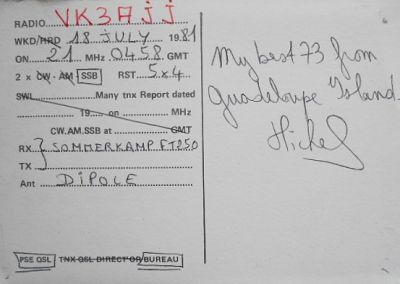 RADIO VK3AJJ
WKD/HRD 18 JULY 1981
ON 21 MHz 0458 GMT
2 x CW - AM SSB RST 5x4
SWL Many tnx Report dated
19 on MHz
CW.AM.SSB at GMT
RX SOMMERKAMP FT250
TX
Ant DIPOLE
PSE QSL TNX QSL DIRECT OR BUREAU
My best 73 from
Guadeloupe Island.
Michel